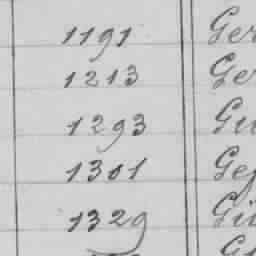 1191 Ger
1213 Ge
1293 Gu
1301 Ge
1329 Gü